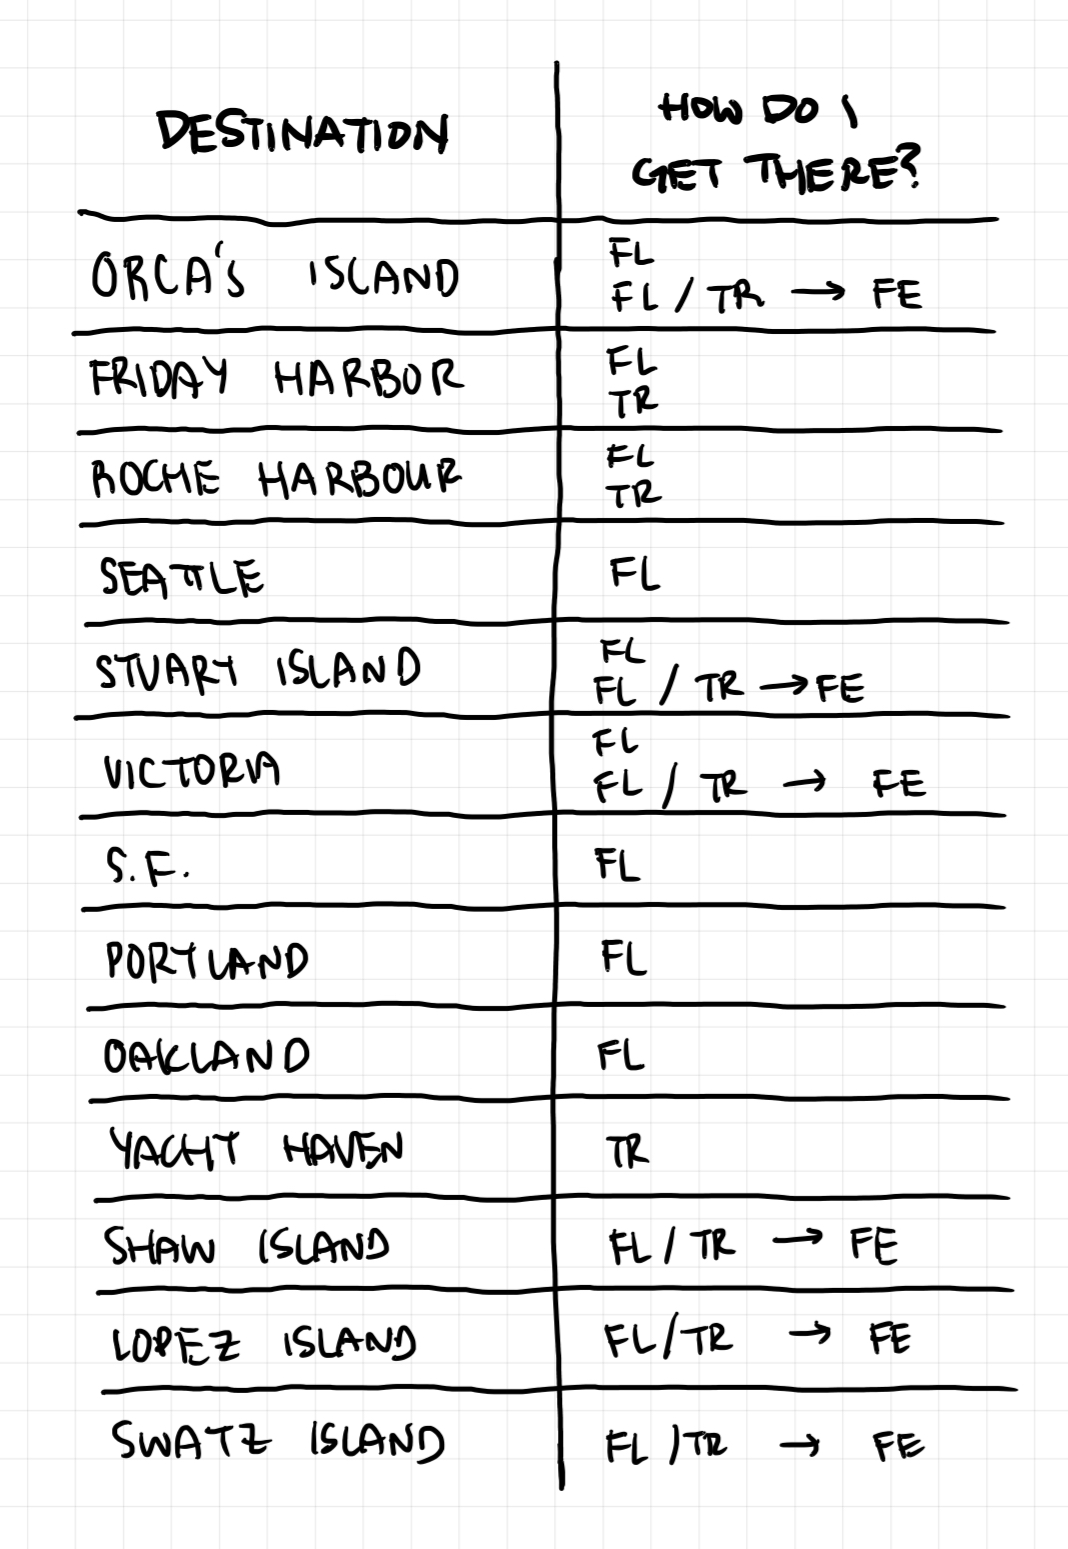 DESTINATION
HOW DO I
GET THERE?
ORCA'S ISLAND
FL
FL / TR → FE
FRIDAY HARBOR
FL
TR
ROCHE HARBOUR
FL
TR
SEATTLE
FL
STUART ISLAND
FL
FL / TR → FE
VICTORIA
FL
FL / TR → FE
S.F.
FL
PORTLAND
FL
OAKLAND
FL
YACHT HAVEN
TR
SHAW ISLAND
FL / TR → FE
LOPEZ ISLAND
FL / TR → FE
SWATZ ISLAND
FL / TR → FE